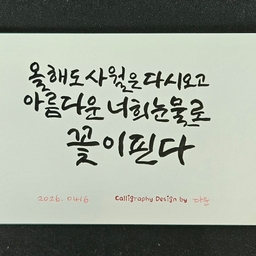 올해도 사월은 다시 오고
아름다운 너희 눈물로
꽃이 핀다
2026. 0416 Calligraphy Design by